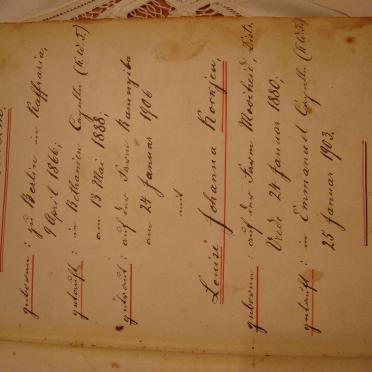 geboren: zu Berlin in Kaffraria,
9 April 1866;
getauft: in Bethanien (K.W.T.)
am 13 Mai 1888;
getraut: auf der Farm
am 24 Januar 1906
mit
Louise Johanna
geboren: auf der Farm Mooiheid, Dist.
Vrede 24 Januar 1880;
getauft: in Emmanuel (K.W.T.)
25 Januar 1903.